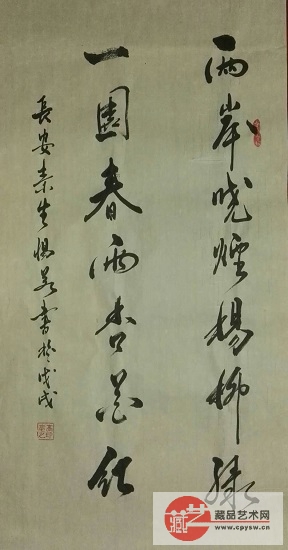 两岸晓烟杨柳绿
一园春雨杏花红
長安素生惕若書於戊戌
藏艺
藏品艺术网
www.cpysw.cn